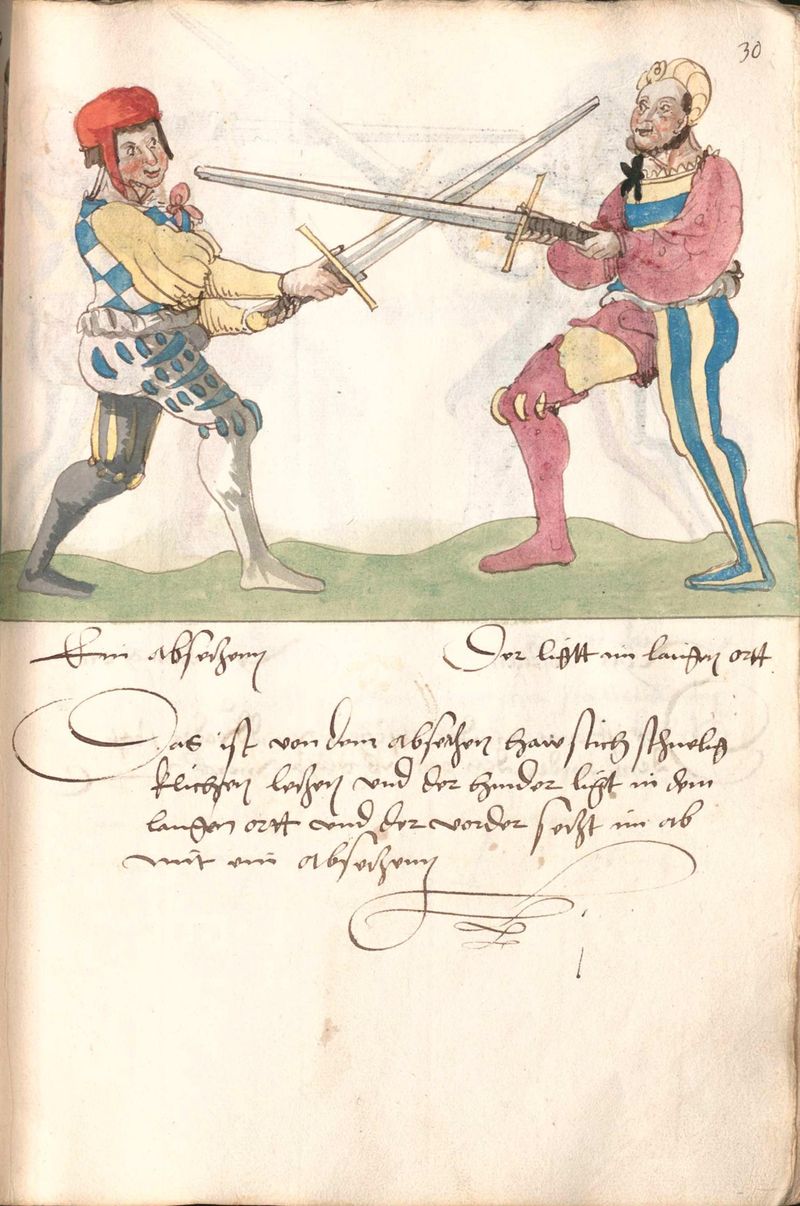 30
Ein absetzenn
Der ligtt im langen ortt
Das ist von dem absetzen haw stich schnelig
klichen letzen vnd der hinder ligt in dem
langen ortt vnd der vorder setzt im ab
mit ein absetzenn